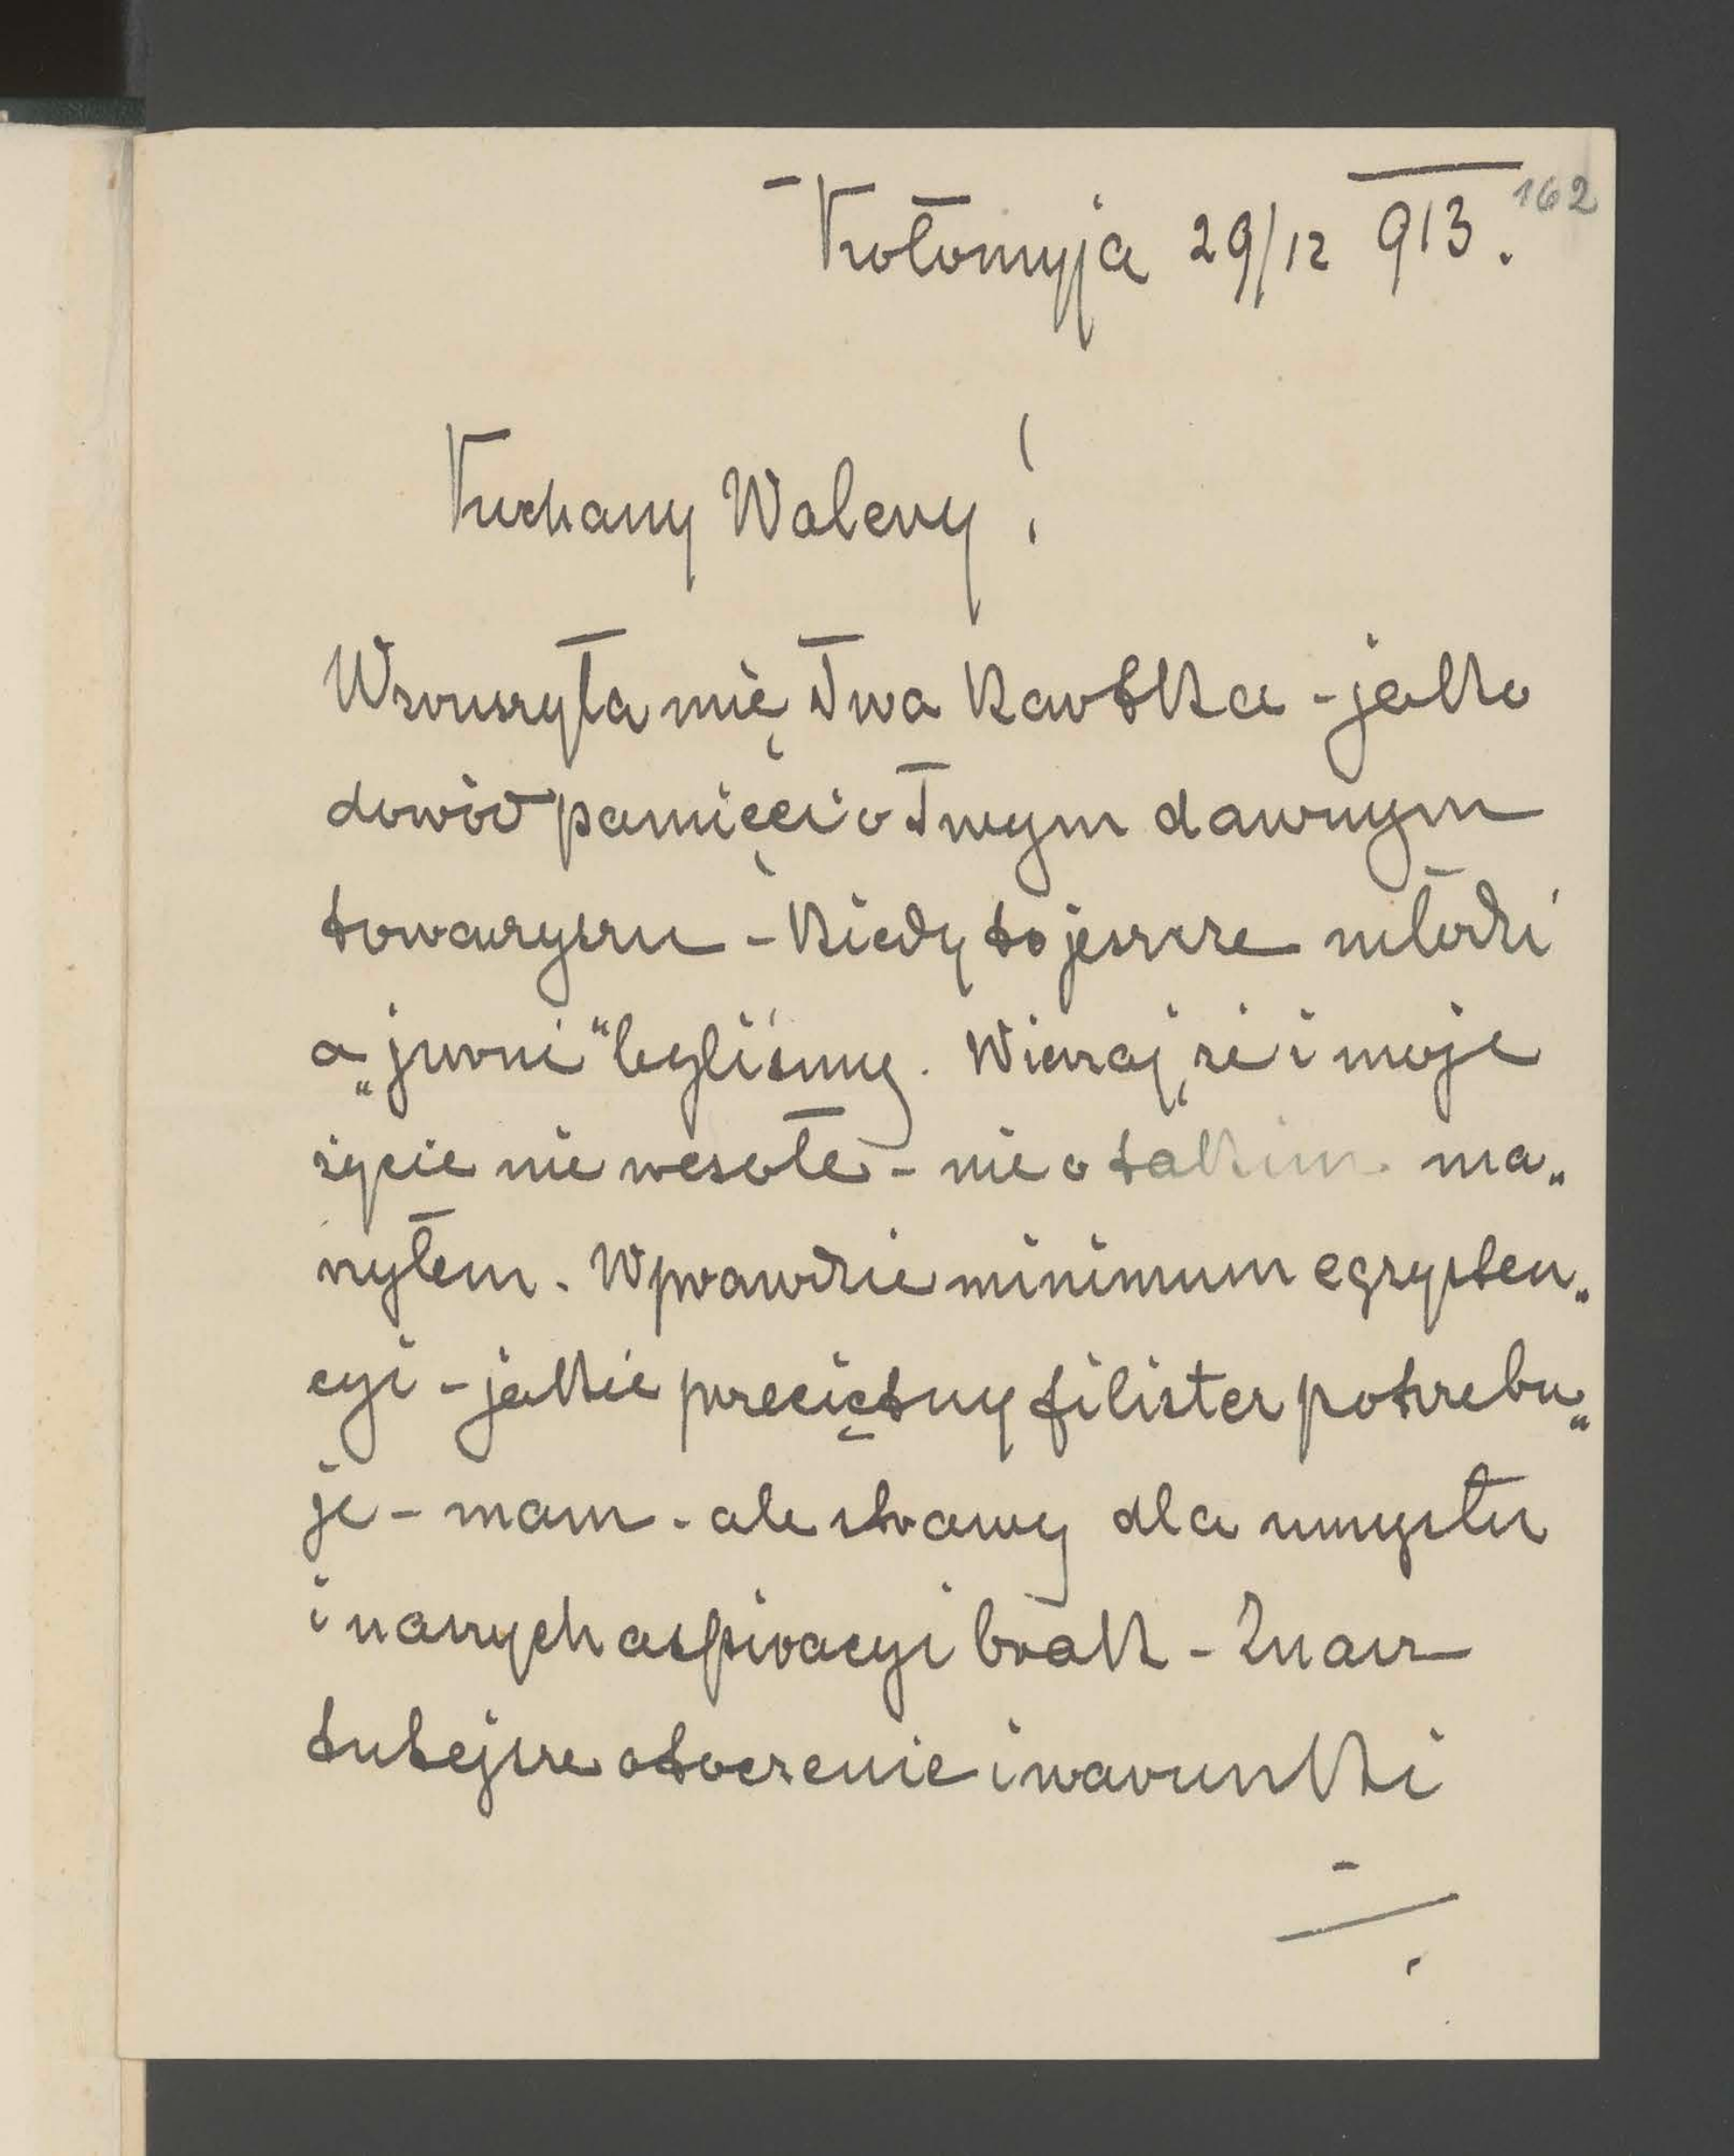 162
Kołomyja 29/12 913.
Kochany Walery!
Wzruszyła mię Twa kartka - jako
dowód pamięci o Twym dawnym
towarzyszu - kiedy to jeszcze młodzi
a „jurni" byliśmy. Wierzaj, że i moje
życie nie wesołe - nie o takim ma„
rzyłem. Wprawdzie minimum egzysten„
cyi - jakie przeciętny filister potrzebu„
je - mam - ale strawy dla umysłu
i naszych aspiracyi brak - Znasz
tutejsze otoczenie i warunki